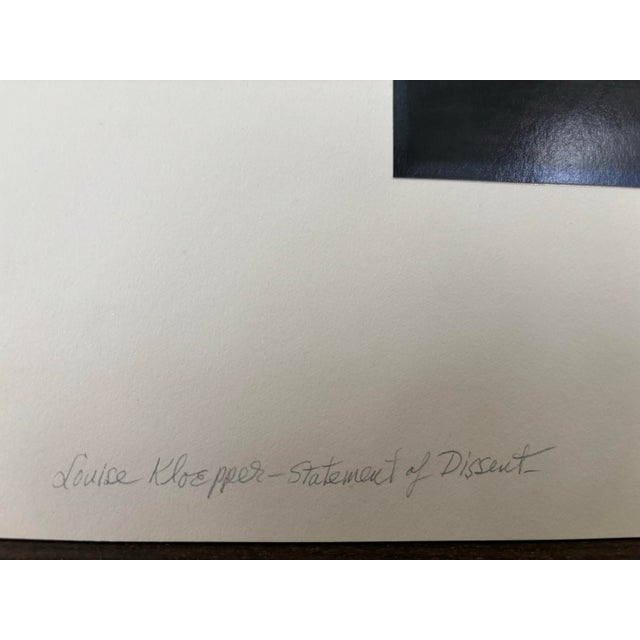 Louise Kloepper – Statement of Dissent –